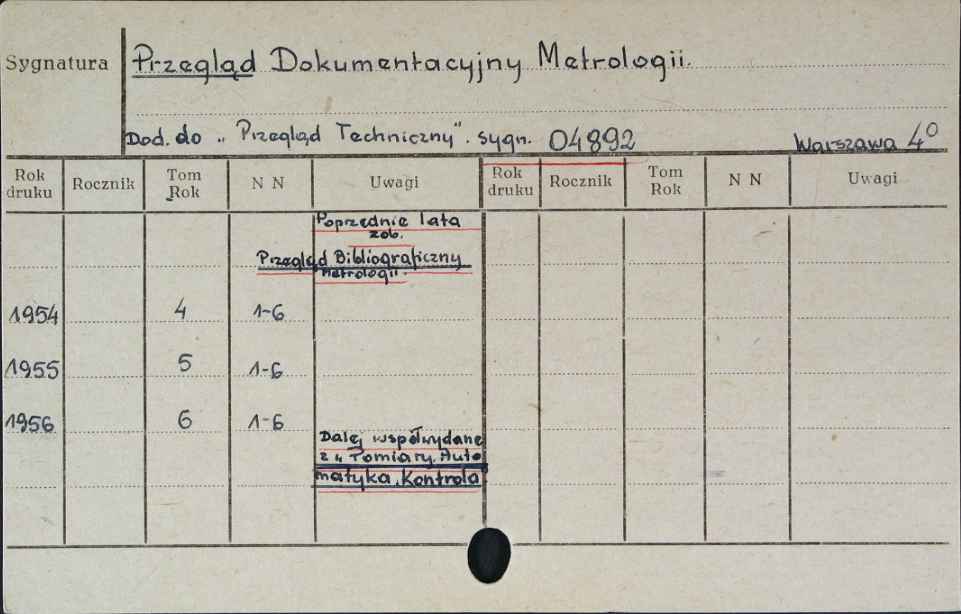 Sygnatura Przegląd Dokumentacyjny Metrologii.
Dod. do „Przegląd Techniczny". sygn. 04892 Warszawa 4⁰
Rok druku Rocznik Tom Rok N N Uwagi Rok druku Rocznik Tom Rok N N Uwagi
Poprzednie lata
zob.
Przegląd Bibliograficzny
metrologii.
1954 4 1-6
1955 5 1-6
1956 6 1-6
Dalej współwydane
z „Pomiary. Auto
matyka. Kontrola